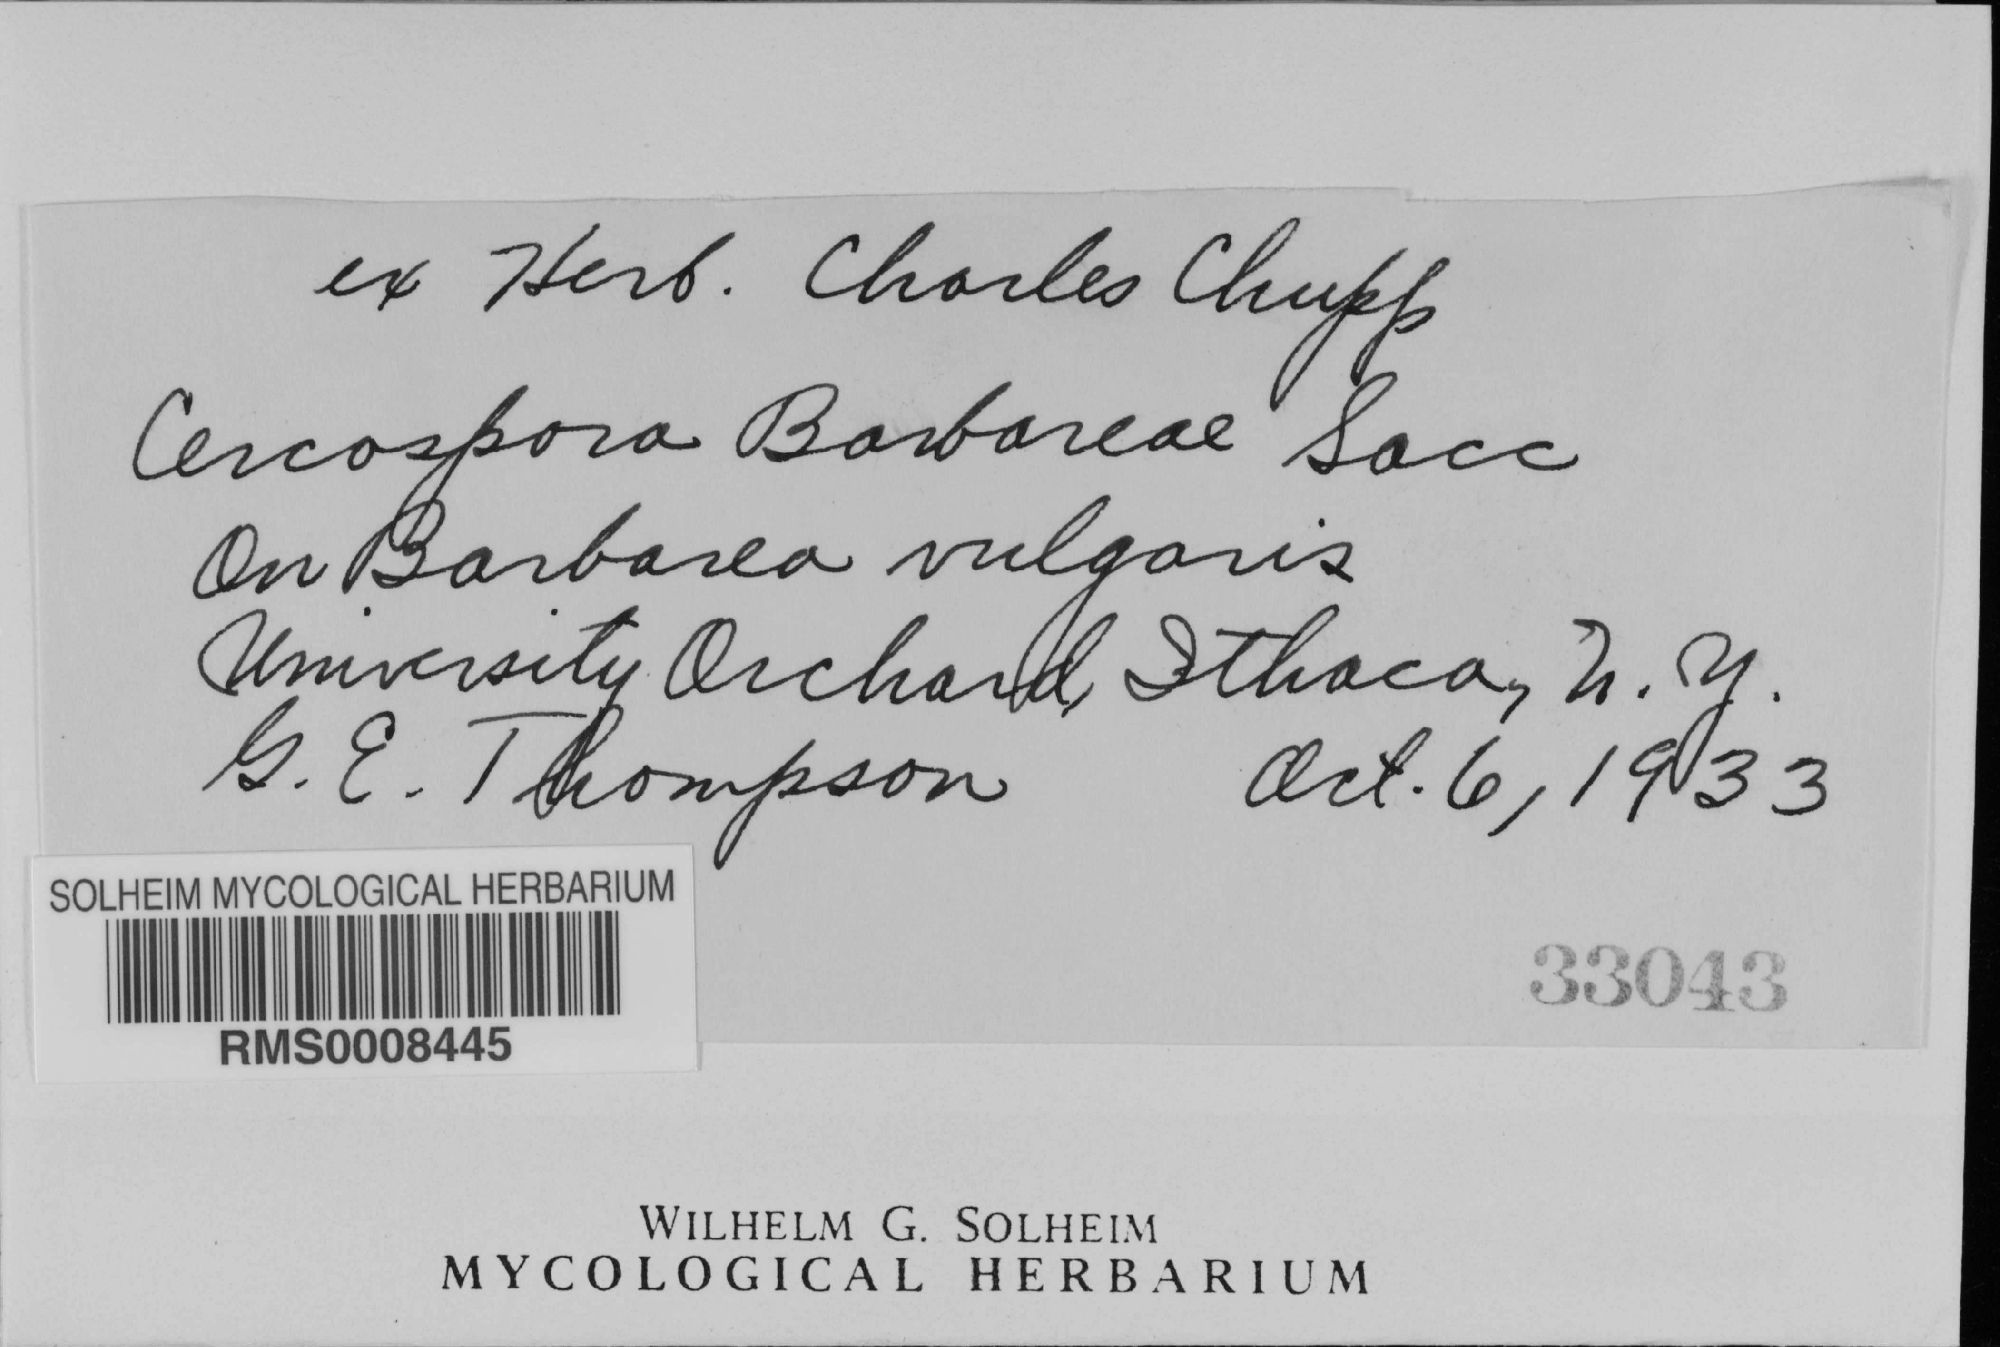 ex Herb. Charles Chupp
Cercospora Barbareae Sacc
On Barbarea vulgaris
University Orchard, Ithaca, N. Y.
G. E. Thompson Oct. 6, 1933
SOLHEIM MYCOLOGICAL HERBARIUM
RMS0008445
33043
WILHELM G. SOLHEIM
MYCOLOGICAL HERBARIUM